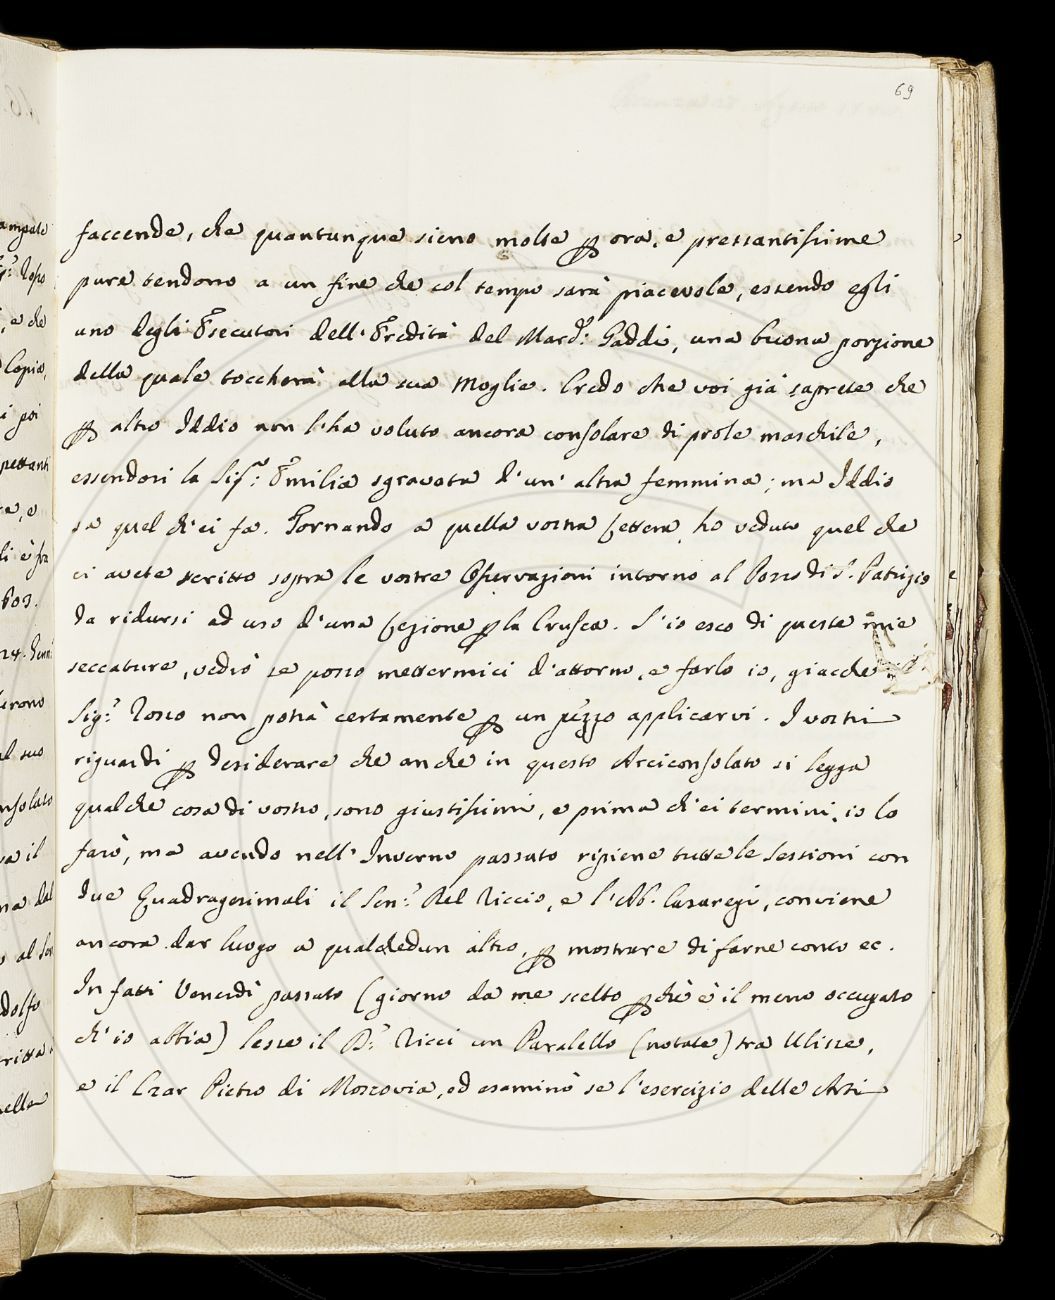 69
faccende, che quantunque sieno molte p ora, e pressantissime
pure tendono a un fine che col tempo sarà piacevole, essendo egli
uno degli Esecutori dell'Eredità del March: Gaddi, una buona porzione
della quale toccherà alla sua Moglie. Credo che voi già saprete che
p altro Iddio non l'ha voluto ancora consolare di prole maschile,
essendosi la Sig.ra Emilia sgravata d'un'altra femmina; ma Iddio
sa quel ch'ei fa. Tornando a quella vostra Lettera, ho veduto quel che
ci avete scritto sopra le vostre Osservazioni intorno al Pozzo di S. Patrizio
da ridursi ad uso d'una Lezione p la Crusca. S'io esco di queste mie
seccature, vedrò se posso mettermici d'attorno, e farlo io, giacche
Sig.r Rosso non potrà certamente p un pezzo applicarvi. I vostri
riguardi p desiderare che anche in questo Arciconsolato si legga
qualche cosa di vostro, sono giustissimi, e prima ch'ei termini, io lo
farò, ma avendo nell'Inverno passato ripiene tutte le Sessioni con
due Quadragesimali il Sen.r Del Riccio, e l'Ab. Casaregi, conviene
ancora dar luogo a qualchedun altro, p mostrare di farne conto ec.
In fatti Venerdì passato (giorno da me scelto pchè è il meno occupato
ch'io abbia) lesse il D.r Ricci un Paralello (notate) tra Ulisse,
e il Czar Pietro di Moscovia, ed esaminò se l'esercizio delle Arti